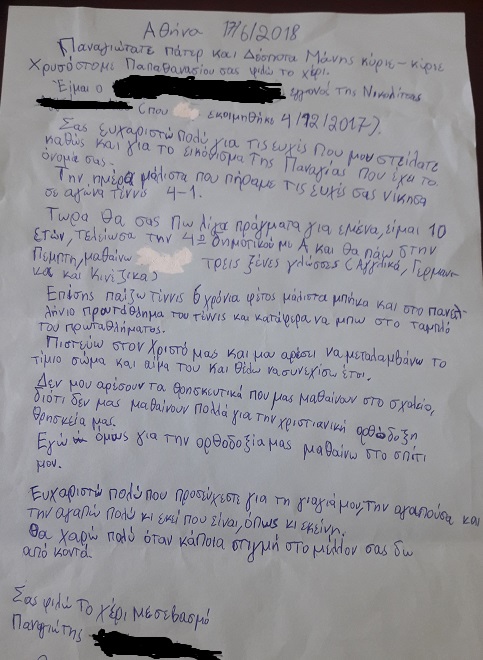 Αθήνα 17/6/2018
Παναγιώτατε πάτερ και Δέσποτα Μάνης κύριε-κύριε
Χρυσόστομε Παπαθανασίου σας φιλώ το χέρι.
Είμαι ο εγγονός της Νικολίτσας
(που εκοιμήθηκε 4/12/2017).
Σας ευχαριστώ πολύ για τις ευχές που μου στείλατε
καθώς και για το εικόνισμα της Παναγίας που έχει το
όνομα σας.
Την ημέρα μάλιστα που πήραμε τις ευχές σας νίκησα
σε αγώνα τέννις 4-1.
Τώρα θα σας πω λίγα πράγματα για εμένα, είμαι 10
ετών, τελείωσα την 4η δημοτικού με Α και θα πάω στην
Πέμπτη, μαθαίνω τρείς ξένες γλώσσες (Αγγλικά, Γερμανι-
κά και Κινέζικα)
Επίσης παίζω τέννις 6 χρόνια φέτος μάλιστα μπήκα και στο πανελ-
λήνιο πρωτάθλημα του τέννις και κατάφερα να μπω στο ταμπλό
του πρωταθλήματος.
Πιστεύω στον Χριστό μας και μου αρέσει να μεταλαμβάνω το
τίμιο σώμα και αίμα του και θέλω να συνεχίσω έτσι.
Δεν μου αρέσουν τα θρησκευτικά που μας μαθαίνουν στο σχολείο,
διότι δεν μας μαθαίνουν πολλά για την χριστιανική ορθόδοξη
θρησκεία μας.
Εγώ όμως για την ορθοδοξία μας μαθαίνω στο σπίτι
μου.
Ευχαριστώ πολύ που προσεύχεστε για τη γιαγιά μου, την αγαπούσα και
την αγαπώ πολύ κι εκεί που είναι, όπως κι εκείνη.
Θα χαρώ πολύ όταν κάποια στιγμή στο μέλλον σας δω
από κοντά.
Σας φιλώ το χέρι με σεβασμό
Παναγιώτης